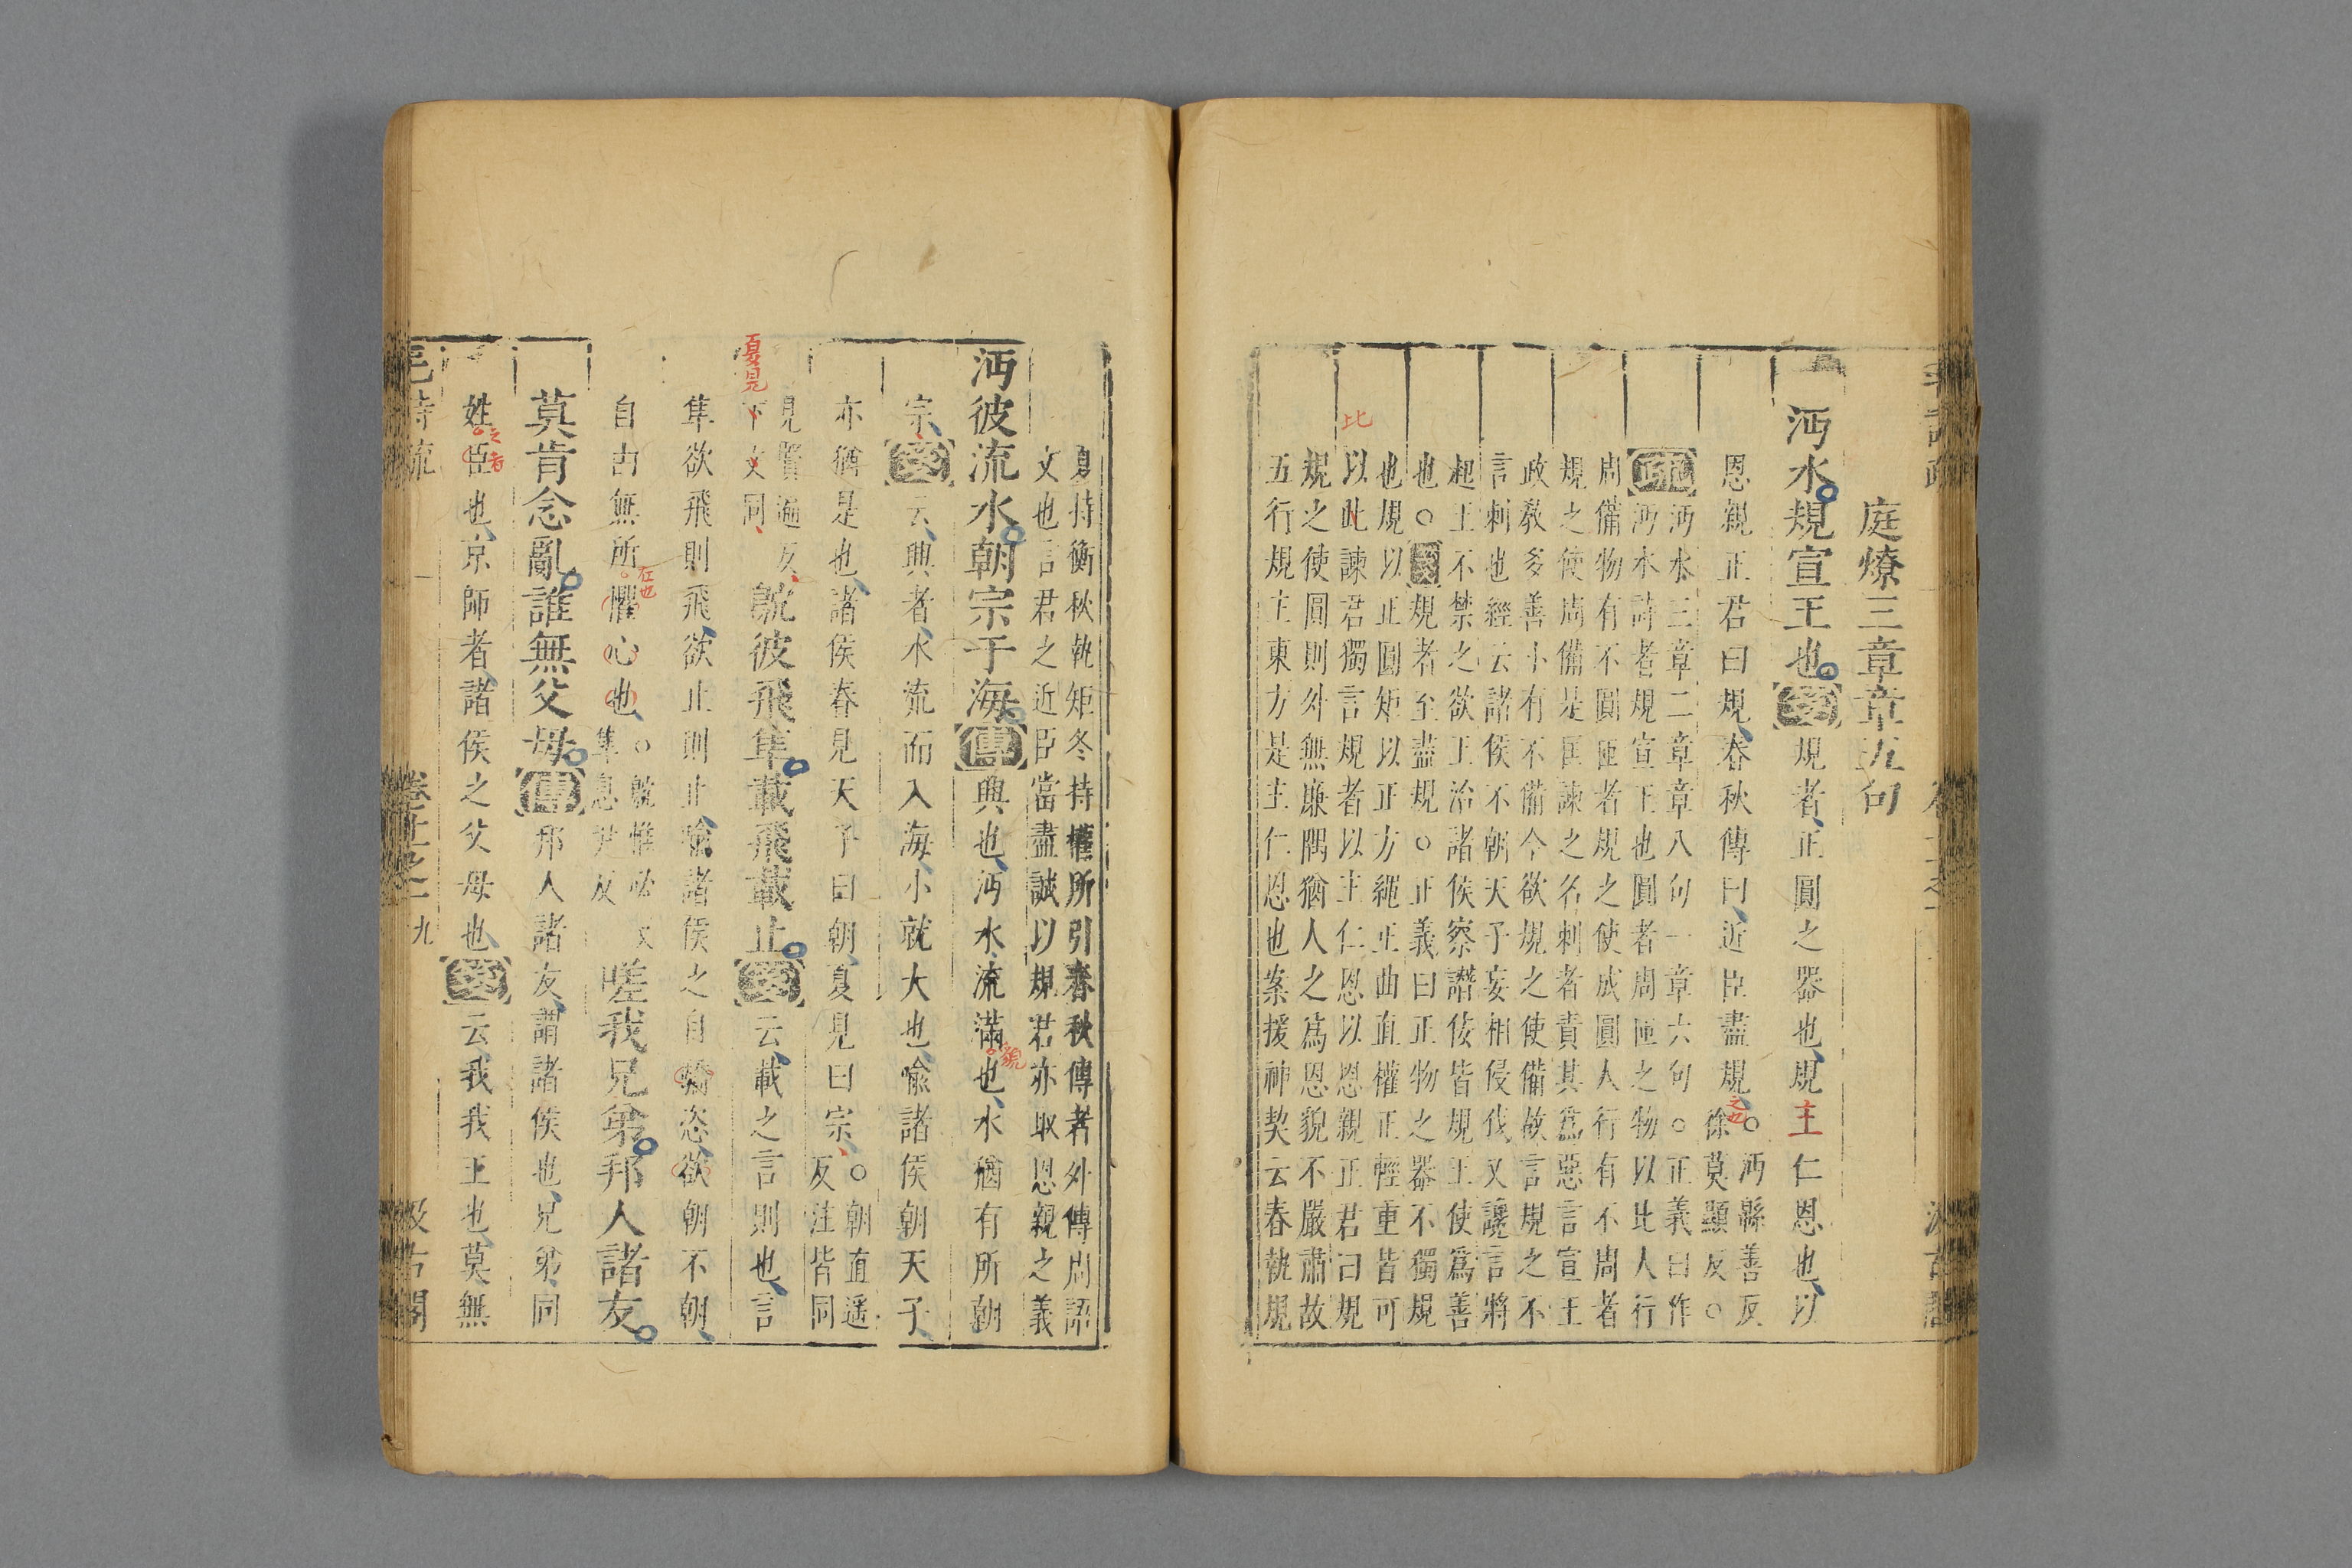 庭燎三章章五句
沔水規宣王也箋規者正圓之器也規主仁恩也以
恩親正君曰規春秋傳曰近臣盡規之也○沔緜善反徐莫顯反○
疏沔水三章二章章八句一章六句○正義曰作
沔水詩者規宣王也圓者周匝之物以比人行
周備物有不圓匝者規之使成圓人行有不周者
規之使周備是匡諫之名刺者責其爲惡言宣王
政教多善小有不備今欲規之使備故言規之不
言刺也經云諸侯不朝天子妄相侵伐又讒言將
起王不禁之欲王治諸侯察譖佞皆規王使爲善
也○箋規者至盡規○正義曰正物之器不獨規
也規以正圓矩以正方繩正曲直權正輕重皆可
以此諫君獨言規者以主仁恩以恩親正君曰規
比
規之使圓則外無廉隅猶人之爲恩貌不嚴肅故
五行規主東方是主仁恩也案援神契云春執規
夏持衡秋執矩冬持權所引春秋傳者外傳周語
文也言君之近臣當盡誠以規君亦取恩親之義
沔彼流水朝宗于海傳興也沔水流滿也水猶有所朝
貌
宗箋云興者水流而入海小就大也喻諸侯朝天子
亦猶是也諸侯春見天子曰朝夏見曰宗○朝直遥反注皆同
夏見
見賢遍反下文同鴥彼飛隼載飛載止箋云載之言則也言
隼欲飛則飛欲止則止喻諸侯之自驕恣欲朝不朝
自由無所懼心也○鴥惟必反隼息尹反嗟我兄弟邦人諸友
在也
莫肯念亂誰無父母傳邦人諸友謂諸侯也兄弟同
姓臣也京師者諸侯之父母也箋云我我王也莫無
之者
毛詩疏 卷十一之一 九 汲古閣